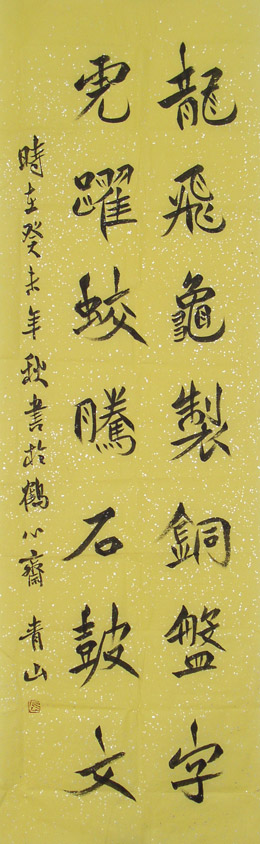 龍飛龜製銅盤字
虎躍蛟騰石鼓文
時在癸未年秋書於鶴心齋 青山